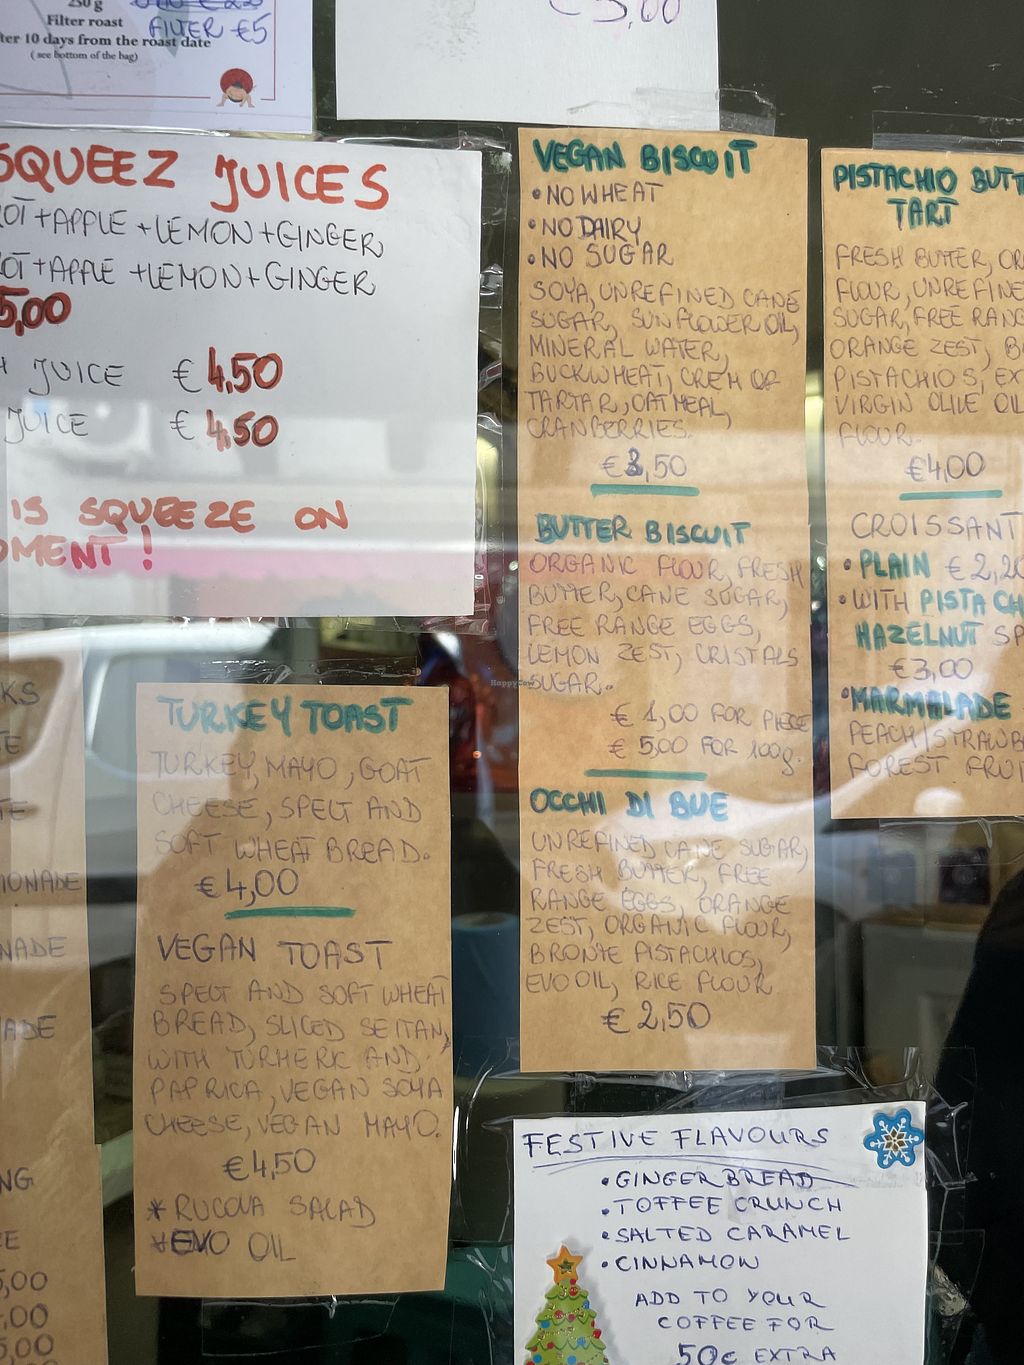 250 g
Filter roast
FILTER €5
ter 10 days from the roast date
( see bottom of the bag)
€5,00
SQUEEZ JUICES
ROT+APPLE+LEMON+GINGER
ROT+APPLE+LEMON+GINGER
5,00
JUICE € 4,50
JUICE € 4,50
IS SQUEEZE ON
OMENT!
VEGAN BISCUIT
• NO WHEAT
• NO DAIRY
• NO SUGAR
SOYA, UNREFINED CANE
SUGAR, SUNFLOWER OIL,
MINERAL WATER,
BUCKWHEAT, CREM OF
TARTAR, OATMEAL,
CRANBERRIES.
€3,50
BUTTER BISCUIT
ORGANIC FLOUR, FRESH
BUTTER, CANE SUGAR,
FREE RANGE EGGS,
LEMON ZEST, CRISTALS
SUGAR.
€ 1,00 FOR PIECE
€ 5,00 FOR 100g.
OCCHI DI BUE
UNREFINED CANE SUGAR,
FRESH BUTTER, FREE
RANGE EGGS, ORANGE
ZEST, ORGANIC FLOUR,
BRONTE PISTACHIOS,
EVO OIL, RICE FLOUR
€ 2,50
PISTACHIO BUTT
TART
FRESH BUTTER, OR
FLOUR, UNREFINE
SUGAR, FREE RANG
ORANGE ZEST, B
PISTACHIOS, EX
VIRGIN OLIVE OIL
FLOUR.
€4,00
CROISSANT
• PLAIN €2,20
• WITH PISTACH
HAZELNUT SP
€3,00
• MARMALADE
PEACH/STRAWB
FOREST FRUI
TURKEY TOAST
TURKEY, MAYO, GOAT
CHEESE, SPELT AND
SOFT WHEAT BREAD.
€4,00
VEGAN TOAST
SPELT AND SOFT WHEAT
BREAD, SLICED SEITAN,
WITH TURMERIC AND
PAPRICA, VEGAN SOYA
CHEESE, VEGAN MAYO.
€4,50
* RUCOLA SALAD
* EVO OIL
KS
TE
TE
IONADE
NADE
ADE
NG
E
5,00
,00
5,00
HappyCow
FESTIVE FLAVOURS
• GINGERBREAD
• TOFFEE CRUNCH
• SALTED CARAMEL
• CINNAMON
ADD TO YOUR
COFFEE FOR
50c EXTRA